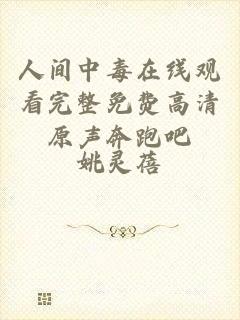 人间中毒在线观
看完整免费高清
原声奔跑吧
姚灵蓓